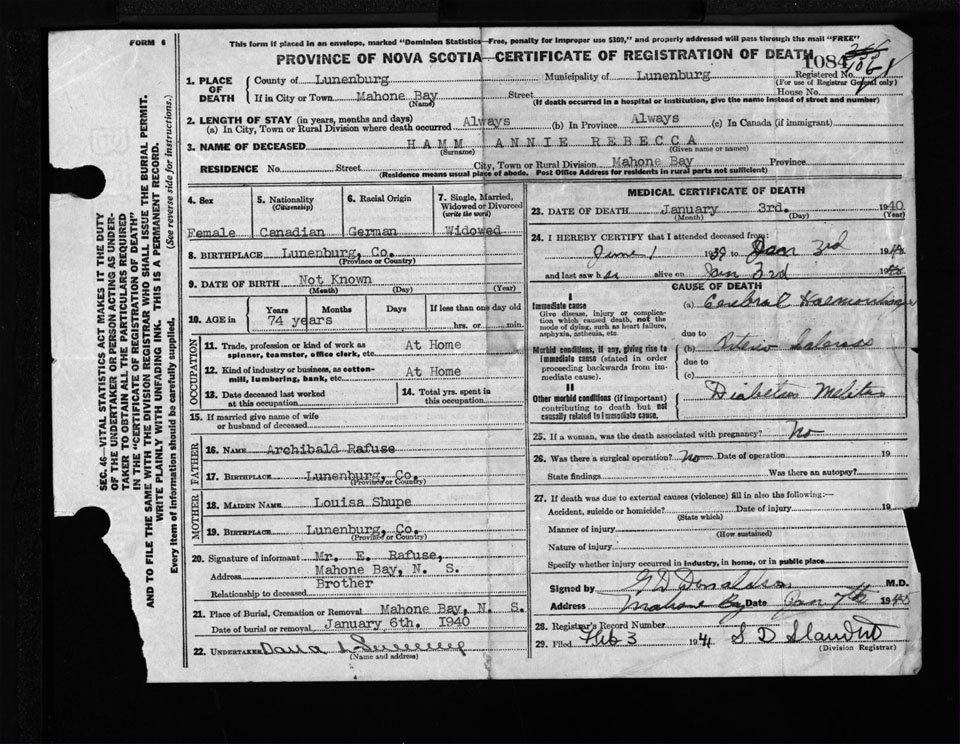 FORM 6
This form if placed in an envelope, marked "Dominion Statistics—Free, penalty for improper use $300," and properly addressed will pass through the mail "FREE"
PROVINCE OF NOVA SCOTIA—CERTIFICATE OF REGISTRATION OF DEATH
1. PLACE OF DEATH
County of Lunenburg Municipality of Lunenburg Registered No.
(For use of Registrar General only)
If in City or Town Mahone Bay Street House No.
(Name) (If death occurred in a hospital or institution, give the name instead of street and number)
2. LENGTH OF STAY (in years, months and days)
(a) In City, Town or Rural Division where death occurred Always (b) In Province Always (c) In Canada (if immigrant)
3. NAME OF DECEASED HAMM ANNIE REBECCA
(Surname) (Given name or names)
RESIDENCE No. Street City, Town or Rural Division Mahone Bay Province
(Residence means usual place of abode. Post Office Address for residents in rural parts not sufficient)
4. Sex
Female
5. Nationality
(Citizenship)
Canadian
6. Racial Origin
German
7. Single, Married, Widowed or Divorced
(write the word)
Widowed
8. BIRTHPLACE Lunenburg, Co.
(Province or Country)
9. DATE OF BIRTH Not Known
(Month) (Day) (Year)
10. AGE in
Years Months Days If less than one day old
74 years hrs. or min.
OCCUPATION
11. Trade, profession or kind of work as spinner, teamster, office clerk, etc. At Home
12. Kind of industry or business, as cotton-mill, lumbering, bank, etc. At Home
13. Date deceased last worked at this occupation
14. Total yrs. spent in this occupation
15. If married give name of wife or husband of deceased
FATHER
16. NAME Archibald Rafuse
17. BIRTHPLACE Lunenburg, Co.
(Province or Country)
MOTHER
18. MAIDEN NAME Louisa Shupe
19. BIRTHPLACE Lunenburg, Co.
(Province or Country)
20. Signature of informant Mr. E. Rafuse,
Address Mahone Bay, N. S.
Relationship to deceased Brother
21. Place of Burial, Cremation or Removal Mahone Bay, N. S.
Date of burial or removal January 6th. 1940
22. UNDERTAKER
(Name and address)
MEDICAL CERTIFICATE OF DEATH
23. DATE OF DEATH January 3rd. 1940
(Month) (Day) (Year)
24. I HEREBY CERTIFY that I attended deceased from:
June 1 1939 to Jan 3rd 1940
and last saw her alive on Jan 3rd 1940
CAUSE OF DEATH
I
Immediate cause
Give disease, injury or complication which caused death, not the mode of dying, such as heart failure, asphyxia, asthenia, etc.
(a) Cerebral Haemorrhage
due to
Morbid conditions, if any, giving rise to immediate cause (stated in order proceeding backwards from immediate cause).
(b) Arterio Sclerosis
due to
(c)
II
Other morbid conditions (if important) contributing to death but not causally related to immediate cause.
Diabetes Melitus
25. If a woman, was the death associated with pregnancy? No
26. Was there a surgical operation? No Date of operation 19
State findings Was there an autopsy?
27. If death was due to external causes (violence) fill in also the following:—
Accident, suicide or homicide? Date of injury 19
(State which)
Manner of injury
(How sustained)
Nature of injury
Specify whether injury occurred in industry, in home, or in public place
Signed by G D Donaldson M.D.
Address Mahone Bay Date Jan 7th 1940
28. Registrar's Record Number
29. Filed Feb 3 194
(Division Registrar)
SEC. 46—VITAL STATISTICS ACT MAKES IT THE DUTY
OF THE UNDERTAKER OR PERSON ACTING AS UNDER-
TAKER TO OBTAIN ALL THE PARTICULARS REQUIRED
IN THE "CERTIFICATE OF REGISTRATION OF DEATH"
AND TO FILE THE SAME WITH THE DIVISION REGISTRAR WHO SHALL ISSUE THE BURIAL PERMIT.
WRITE PLAINLY WITH UNFADING INK. THIS IS A PERMANENT RECORD.
Every item of information should be carefully supplied. (See reverse side for instructions.)